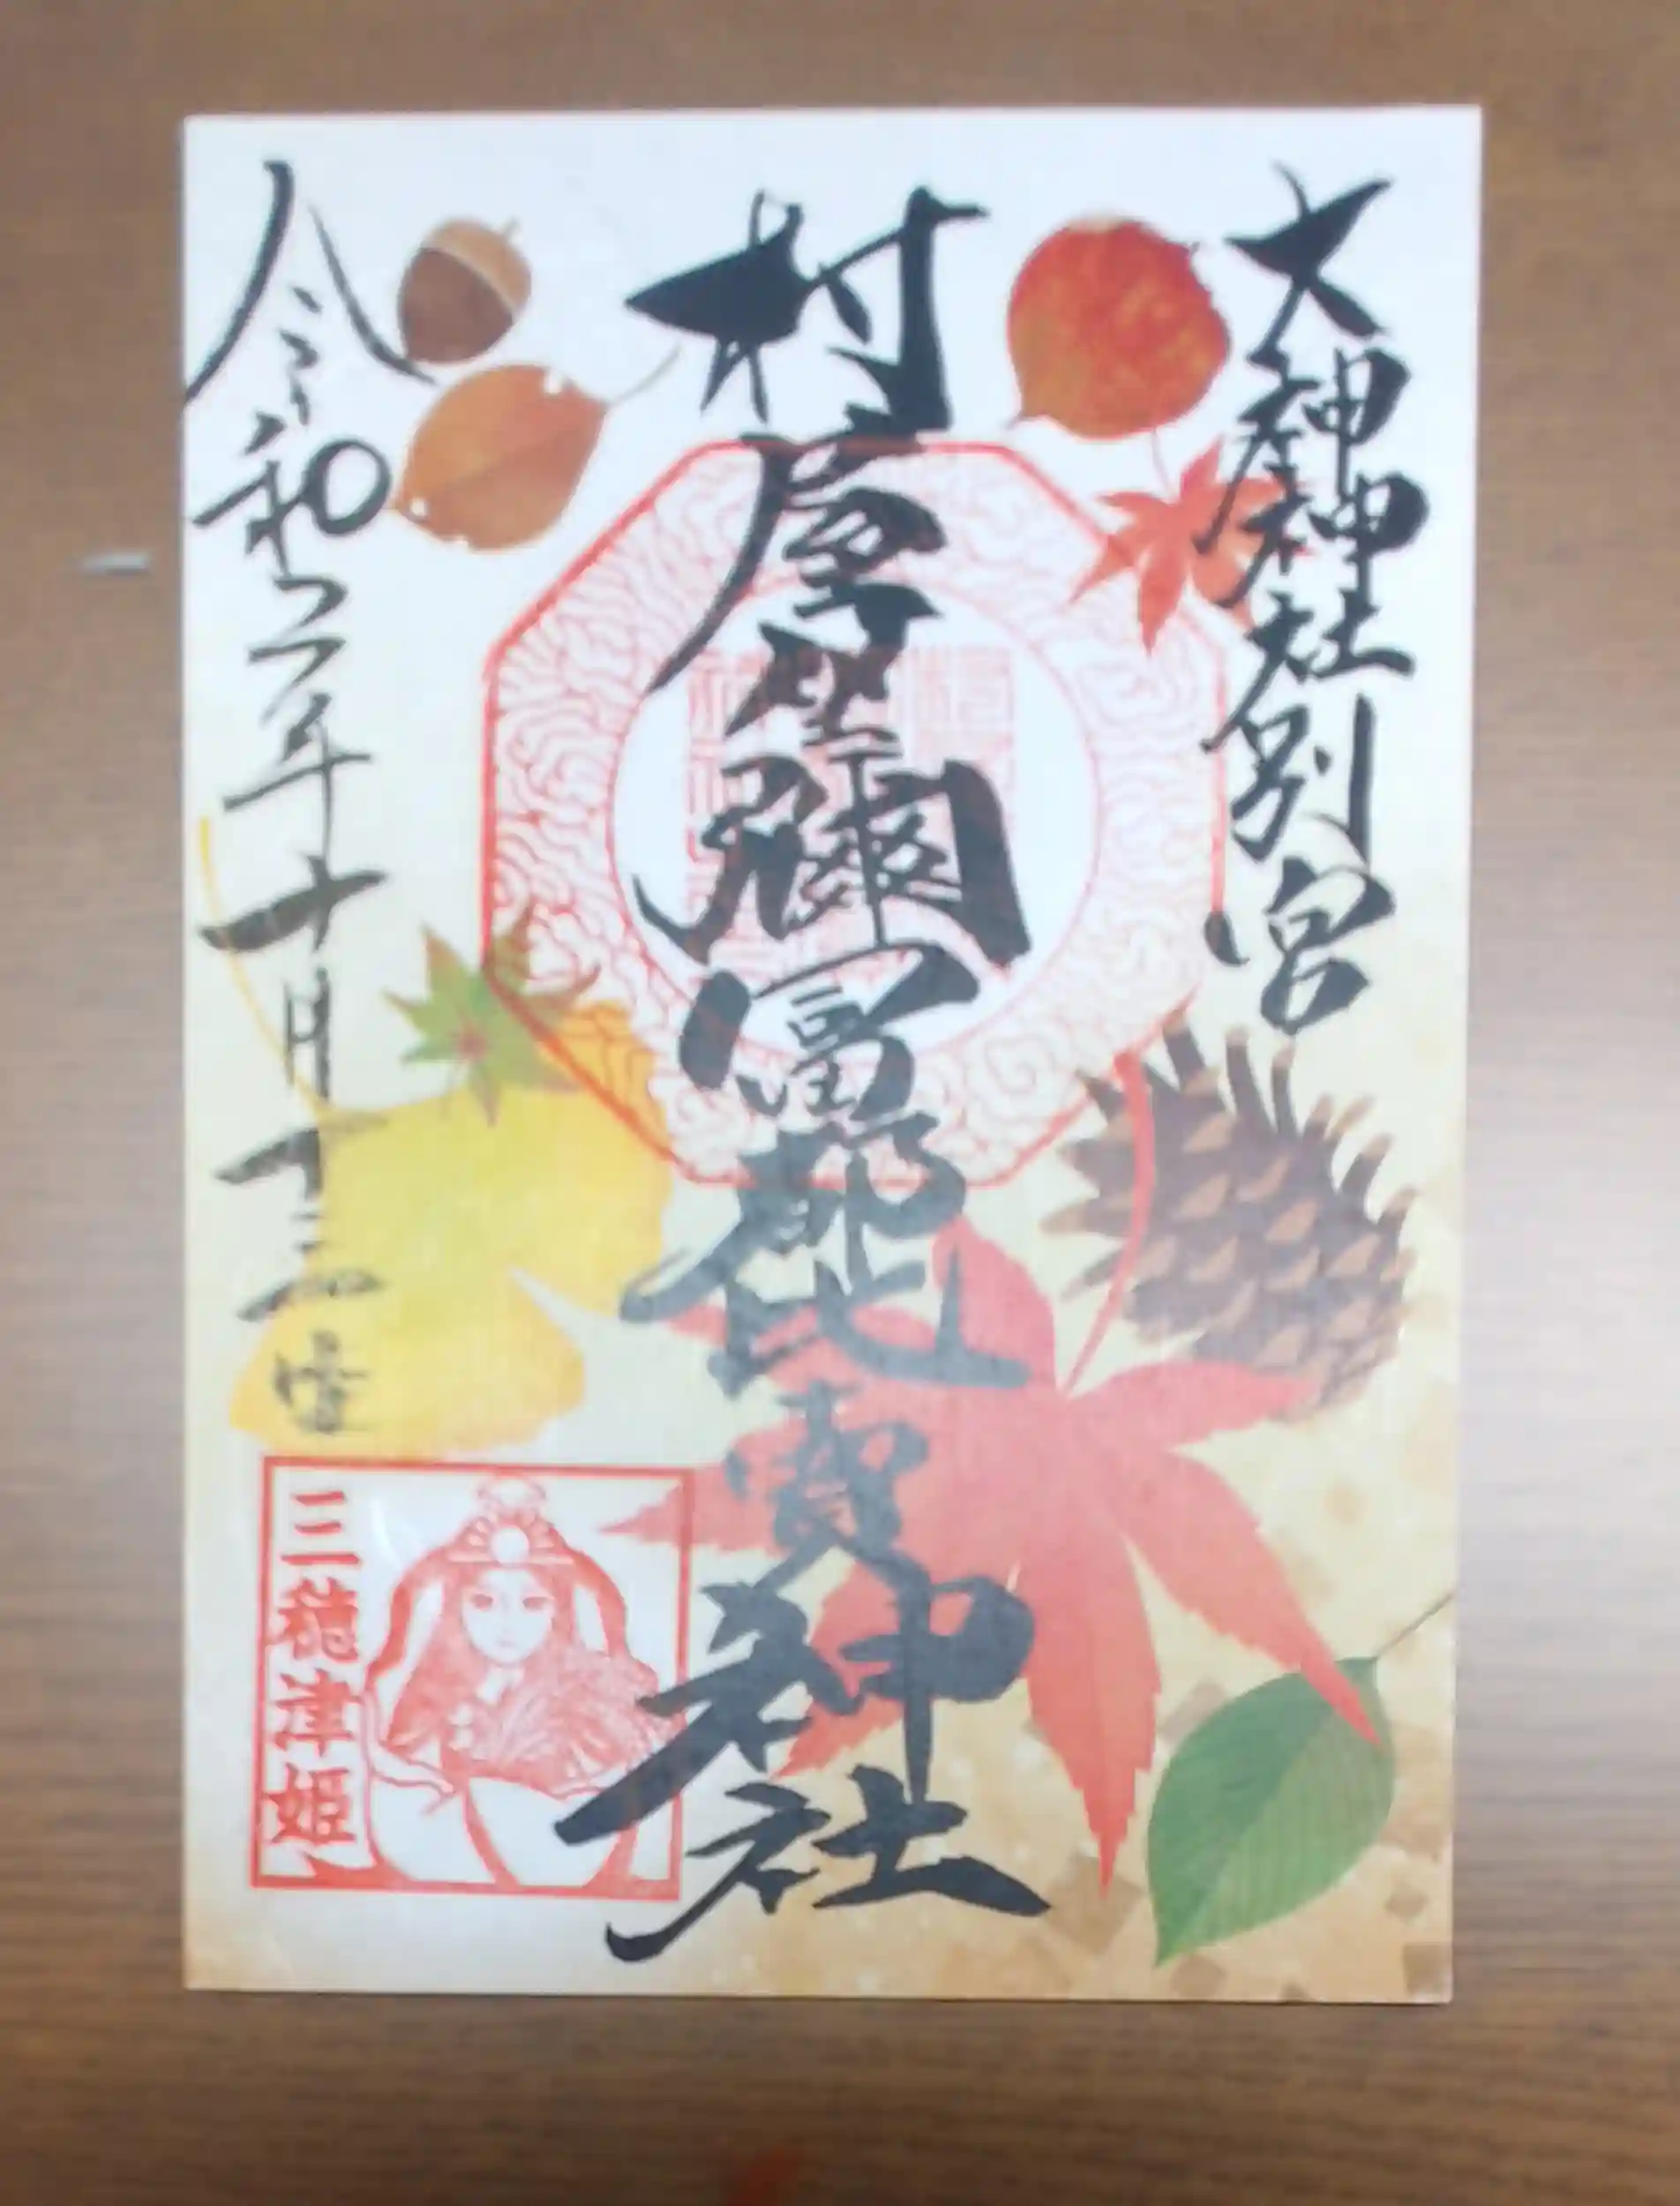 大神神社別宮
村屋坐彌冨都比賣神社
令和二年十月十三
三穂津姫